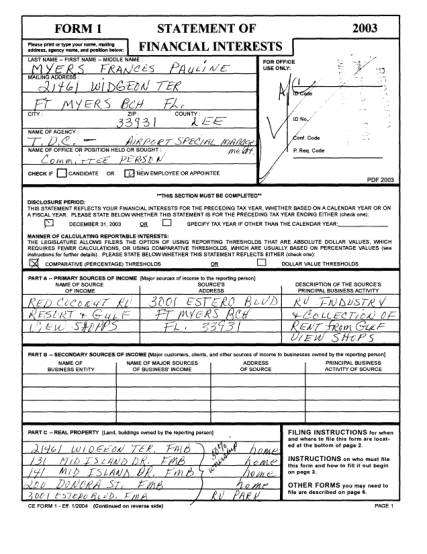 FORM 1 STATEMENT OF 2003
Please print or type your name, mailing address, agency name, and position below: FINANCIAL INTERESTS
LAST NAME -- FIRST NAME -- MIDDLE NAME :
MYERS FRANCES PAULINE
MAILING ADDRESS :
21461 WIDGEON TER
FT MYERS BCH FL.
CITY : ZIP : COUNTY :
33931 LEE
NAME OF AGENCY :
T.D.C. - AIRPORT SPECIAL
NAME OF OFFICE OR POSITION HELD OR SOUGHT :
COMMITTEE PERSON
CHECK IF CANDIDATE OR NEW EMPLOYEE OR APPOINTEE
FOR OFFICE USE ONLY:
ID Code
ID No.
Conf. Code
P. Req. Code
PDF 2003
**THIS SECTION MUST BE COMPLETED**
DISCLOSURE PERIOD:
THIS STATEMENT REFLECTS YOUR FINANCIAL INTERESTS FOR THE PRECEDING TAX YEAR, WHETHER BASED ON A CALENDAR YEAR OR ON
A FISCAL YEAR. PLEASE STATE BELOW WHETHER THIS STATEMENT IS FOR THE PRECEDING TAX YEAR ENDING EITHER (check one):
DECEMBER 31, 2003 OR SPECIFY TAX YEAR IF OTHER THAN THE CALENDAR YEAR:
MANNER OF CALCULATING REPORTABLE INTERESTS:
THE LEGISLATURE ALLOWS FILERS THE OPTION OF USING REPORTING THRESHOLDS THAT ARE ABSOLUTE DOLLAR VALUES, WHICH
REQUIRES FEWER CALCULATIONS, OR USING COMPARATIVE THRESHOLDS, WHICH ARE USUALLY BASED ON PERCENTAGE VALUES (see
instructions for further details). PLEASE STATE BELOW WHETHER THIS STATEMENT REFLECTS EITHER (check one):
COMPARATIVE (PERCENTAGE) THRESHOLDS OR DOLLAR VALUE THRESHOLDS
PART A -- PRIMARY SOURCES OF INCOME [Major sources of income to the reporting person]
NAME OF SOURCE OF INCOME SOURCE'S ADDRESS DESCRIPTION OF THE SOURCE'S PRINCIPAL BUSINESS ACTIVITY
RED COCONUT RV 3001 ESTERO BLVD RV INDUSTRY
RESORT & GULF FT MYERS BCH & COLLECTION OF
VIEW SHOPPS FL. 33931 RENT from GULF
VIEW SHOPS
PART B -- SECONDARY SOURCES OF INCOME [Major customers, clients, and other sources of income to businesses owned by the reporting person]
NAME OF BUSINESS ENTITY NAME OF MAJOR SOURCES OF BUSINESS' INCOME ADDRESS OF SOURCE PRINCIPAL BUSINESS ACTIVITY OF SOURCE
PART C -- REAL PROPERTY [Land, buildings owned by the reporting person]
21461 WIDGEON TER. FMB home
131 MID ISLAND DR. FMB home
141 MID ISLAND DR. FMB home
200 DONORA ST. FMB home
3001 ESTERO BLVD. FMB RV PARK
FILING INSTRUCTIONS for when and where to file this form are located at the bottom of page 2.
INSTRUCTIONS on who must file this form and how to fill it out begin on page 3.
OTHER FORMS you may need to file are described on page 6.
CE FORM 1 - Eff. 1/2004 (Continued on reverse side) PAGE 1